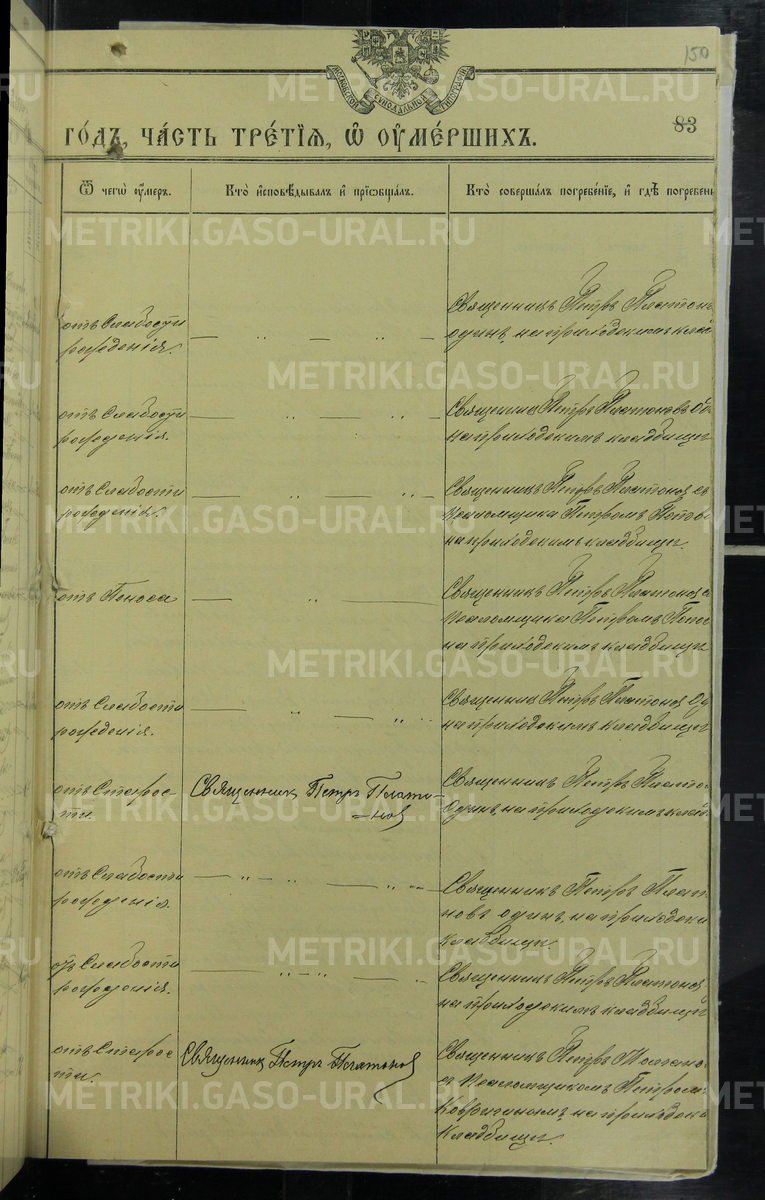 150
МОСКОВСКОЙ СѴНОДАЛЬНОЙ ТИПОГРАФІИ
83
ГО́ДЪ, ЧА́СТЬ ТРЕ́ТІЯ, Ѡ ОУМЕ́РШИХЪ.
Ѿ чегѡ оу҆́меръ.
Кто̀ и҆сповѣ́дывалъ и҆ прїѡбща́лъ.
Кто̀ соверша́лъ погребе́нїе, и҆ гдѣ̀ погребены
отъ Слабости
рожденія.
Священникъ Петръ Платон
одинъ, на приходскимъ клад
отъ Слабости
рожденія.
Священникъ Петръ Платоновъ од
на приходскимъ кладбищѣ
отъ Слабости
рожденія.
Священникъ Петръ Платонов съ
Псаломщика Петромъ Попов
на приходскимъ кладбищѣ.
отъ Поноса
Священникъ Петръ Платонов с
Псаломщика Петромъ Попо
на приходскимъ кладбищѣ
отъ Слабости
рожденія.
Священникъ Петръ Платонов Од
на приходскимъ кладбищѣ
отъ Старос-
ти.
Священникъ Петръ Плато-
-нов
Священникъ Петръ Плато
Одинъ, на приходскимъ кладб
отъ Слабости
рожденія.
Священникъ Петръ Плат
новъ одинъ, на приходски
кладбищѣ.
отъ Слабости
рожденія.
Священникъ Петръ Платонов
на приходскимъ кладбищѣ
отъ Старос-
ти.
Священникъ Петръ Платонов
Священникъ Петръ Платоно
съ Псаломщикомъ Петромъ
Ковригинымъ, на приходско
Кладбищѣ.
METRIKI.GASO-URAL.RU